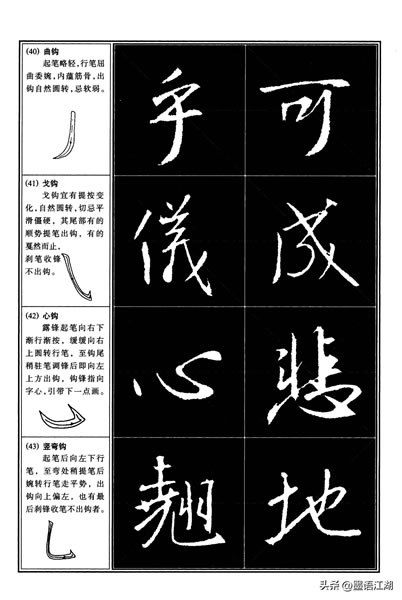 (40) 曲钩
起笔略轻，行笔屈
曲委婉，内蕴筋骨，出
钩自然圆转，忌软弱。
乎 可
(41) 戈钩
戈钩宜有提按变
化，自然圆转，切忌平
滑僵硬，其尾部有的
顺势提笔出钩，有的
戛然而止，
刹笔收锋
不出钩。
儀 成
(42) 心钩
露锋起笔向右下
渐行渐按，缓缓向右
上圆转行笔，至钩尾
稍驻笔调锋后即向左
上方出钩，钩锋指向
字心，引带下一点画。
心 悲
(43) 竖弯钩
起笔后向左下行
笔，至弯处稍提笔后
婉转行笔走平势，出
钩向上偏左，也有最
后刹锋收笔不出钩者。
翘 地
头条 @墨语江湖